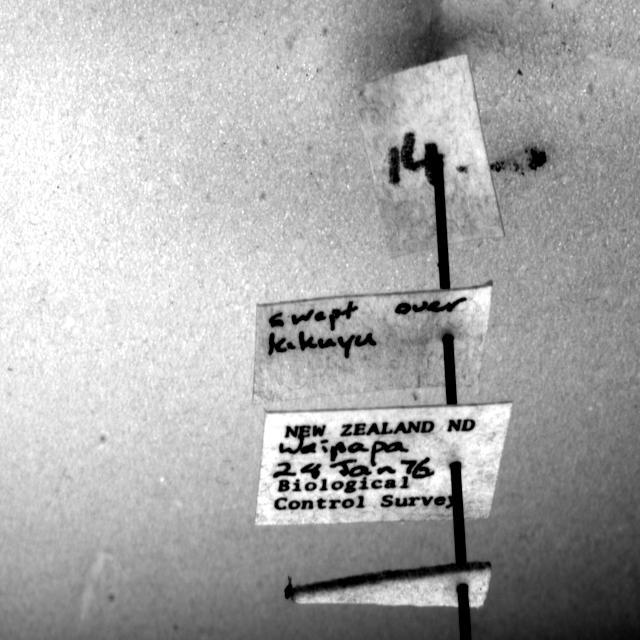 14
swept over
kikuyu
NEW ZEALAND ND
Waipapa
24 Jan 76
Biological
Control Survey